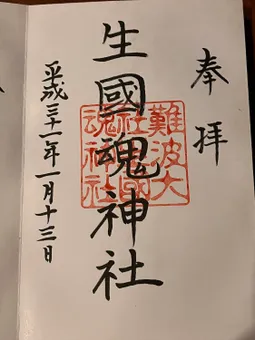 奉拝
難波大
社生國
魂神社
生國魂神社
平成三十一年一月十三日